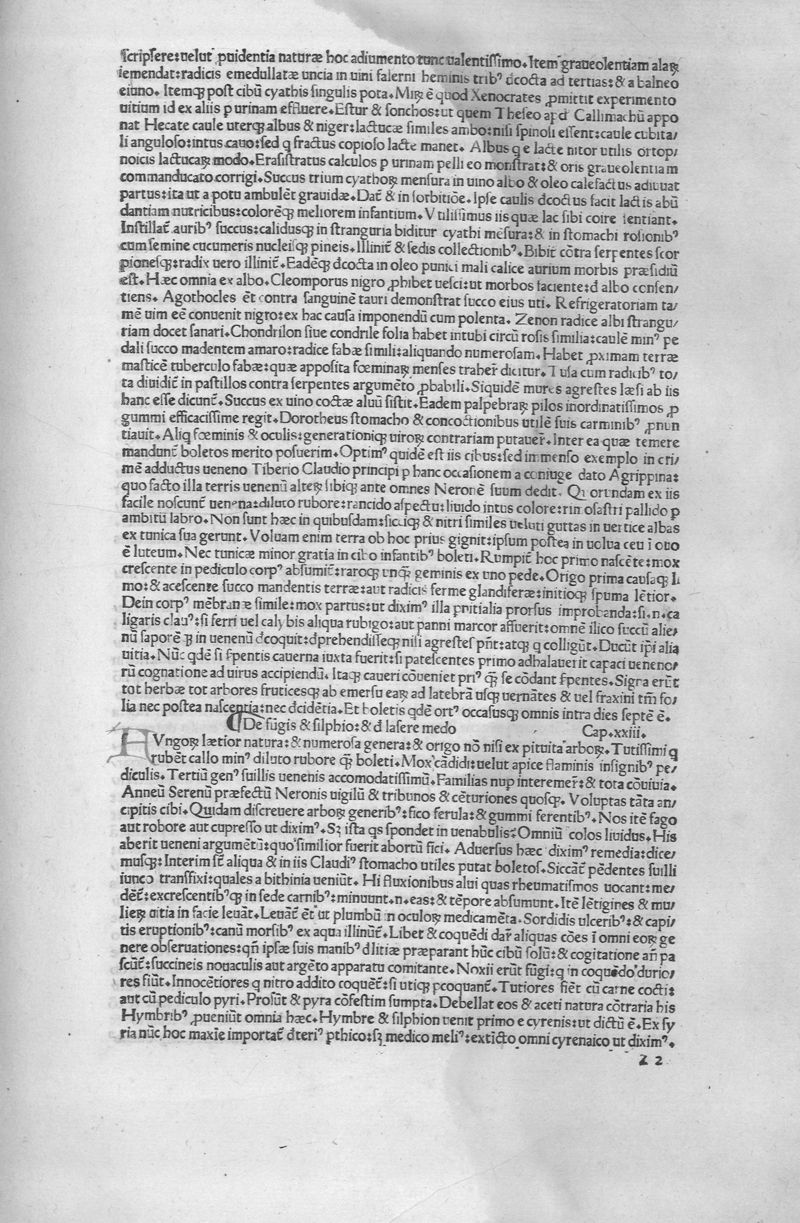 scripsere:uelut ꝓuidentia naturæ hoc adiumento tunc ualentissimo. Item graueolentiam alaꝝ
iemendat:radicis emedullatæ uncia in uini falerni heminis trib⁹ dcocta ad tertias:& a balneo
eiuno. Itemqꝫ post cibū cyathis singulis pota. Miꝝ ē quod Xenocrates ꝓmittit experimento
uitium id ex aliis p urinam effluere. Estur & sonchos:ut quem Theseo apd Callimachū appo
nat Hecate caule uterqꝫ albus & niger:lactucæ similes ambo:nisi spinoli essent:caule cubita/
li anguloso:intus cauo:sed q fractus copioso lacte manet. Albus q e lacte nitor utilis ortop/
noicis lactucaꝝ modo. Erasistratus calculos p urinam pelli eo monstrat:& oris graueolentiam
commanducato corrigi. Succus trium cyathoꝝ mensura in uino albo & oleo calefactus adiuuat
partus:ita ut a potu ambulēt grauidæ. Dat̄ & in sorbitiōe. Ipse caulis dcoctus facit lactis abū
dantiam nutricibus:coloreqꝫ meliorem infantium. Vtilissimus iis quæ lac sibi coire sentiant.
Instillat̄ aurib⁹ succus:calidusqꝫ in stranguria biditur cyathi mēsura:& in stomachi rosionib⁹
cum semine cucumeris nucleisqꝫ pineis. Illinit̄ & sedis collectionib⁹. Bibit̄ cōtra serpentes scor
pionesqꝫ:radix uero illinit̄. Eadēqꝫ dcocta in oleo punici mali calice aurium morbis præsidiū
est. Hæc omnia ex albo. Cleomporus nigro ꝓhibet uesci:ut morbos faciente:d albo consen/
tiens. Agothocles ēt contra sanguinē tauri demonstrat succo eius uti. Refrigeratoriam ta/
mē uim eē conuenit nigro:ex hac causa imponendū cum polenta. Zenon radice albi strangu/
riam docet sanari. Chondrilon siue condrile folia habet intubi circū rosis similia:caulē min⁹ pe
dali succo madentem amaro:radice fabæ simili:aliquando numerosam. Habet ꝓximam terræ
masticē tuberculo fabæ:quæ apposita fœminaꝝ menses traher̄ dicitur. Tusa cum radicib⁹ to/
ta diuidit̄ in pastillos contra serpentes argumēto ꝓbabili. Siquidē mures agrestes læsi ab iis
hanc esse dicunt̄. Succus ex uino coctæ aluū sistit. Eadem palpebraꝝ pilos inordinatissimos p
gummi efficacissime regit. Dorotheus stomacho & concoctionibus utilē suis carminib⁹ ꝓnun
tiauit. Aliq fœminis & oculis:generationiqꝫ uiroꝝ contrariam putauer̄. Inter ea quæ temere
mandunt̄ boletos merito posuerim. Optim⁹ quidē est iis cibus:sed in menso exemplo in cri/
mē adductus ueneno Tiberio Claudio principi p hanc occasionem a coniuge dato Agrippina:
quo facto illa terris uenenū alteꝝ sibiqꝫ ante omnes Neronē suum dedit. Quorundam ex iis
facile noscunt̄ uenena:diluto rubore:rancido aspectu:liuido intus colore:rimosa stri pallido p
ambitū labro. Non sunt hæc in quibusdam:siccisqꝫ & nitri similes ueluti guttas in uertice albas
ex tunica sua gerunt. Voluam enim terra ob hoc prius gignit:ipsum postea in uolua ceu ī ouo
ē luteum. Nec tunicæ minor gratia in cibo infantib⁹ boleti. Rumpit̄ hoc primo nascēte:mox
crescente in pediculo corp⁹ absumit̄:raroqꝫ unqꝫ geminis ex uno pede. Origo prima causaqꝫ li
mo:& acescente succo mandentis terræ:aut radicis ferme glandiferæ:initioqꝫ spuma lētior.
Dein corp⁹ mēbranæ simile:mox partus:ut dixim⁹ illa pnitialia prorsus improbanda:si.n.ca
ligaris clau⁹:si ferri uel calybis aliqua rubigo:aut panni marcor affuerit:omnē ilico succū alie/
nū saporē qꝫ in uenenū dcoquit:dprehendisseqꝫ nisi agrestes pn̄t:atqꝫ q colligūt. Ducūt ip̄i alia
uitia. Nūc qdē si ſpentis cauerna iuxta fuerit:si patescentes primo adhalauerit capaci ueneno/
rū cognatione ad uirus accipiendū. Itaqꝫ caueri cōueniet pri⁹ qꝫ se cōdant ſpentes. Signa erūt
tot herbæ tot arbores fruticesqꝫ ab emersu eaꝝ ad latebrā usqꝫ uernātes & uel fraxini tm̄ fo/
lia nec postea nascentia:nec dcidētia. Et boletis qdē ort⁹ occasusqꝫ omnis intra dies septē ē.
¶ De fūgis & silphio:& d lasere medo Cap.xxiii.
FVngoꝝ lætior natura:& numerosa genera:& origo nō nisi ex pituita arboꝝ. Tutissimi q
rubēt callo min⁹ diluto rubore qꝫ boleti. Mox cādidi:uelut apice flaminis insignib⁹ pe/
diculis. Tertiū gen⁹ suillis uenenis accomodatissimū. Familias nup interemer̄:& tota cōuiuia.
Anneū Serenū præfectū Neronis uigilū & tribunos & cēturiones quosqꝫ. Voluptas tāta an/
cipitis cibi. Quidam discreuere arboꝝ generib⁹:fico ferula:& gummi ferentib⁹. Nos itē fago
aut robore aut cupresso ut dixim⁹. Sꝫ ista qs spondet in uenabulis? Omniū colos liuidus. His
aberit ueneni argumētū:quo similior fuerit abortū fici. Aduersus hæc dixim⁹ remedia:dice/
musqꝫ:Interim sēt aliqua & in iis Claudi⁹ stomacho utiles putat boletos. Siccāt̄ pēdentes suilli
iunco transfixi:quales a bithinia ueniūt. Hi fluxionibus alui quas rheumatismos uocant:me/
dēt̄:excrescentib⁹qꝫ in sede carnib⁹:minuunt.n.eas:& tēpore absumunt. Itē lētigines & mu/
lieꝝ uitia in facie leuāt. Leuāt̄ ēt ut plumbū in oculoꝝ medicamēta. Sordidis ulcerib⁹:& capi/
tis eruptionib⁹:canū morsib⁹ ex aqua illinūt̄. Libet & coquēdi dar̄ aliquas cōes ī omni eoꝝ ge
nere obseruationes:qn̄ ipsæ suis manib⁹ dlitiæ præparant hūc cibū solū:& cogitatione an̄ pa
scūt̄:succineis nouaculis aut argēto apparatu comitante. Noxii erūt fūgi:q in coquēdo durio/
res fiūt. Innocētiores q nitro addito coquēt̄:si utiqꝫ pcoquant̄. Tutiores fiēt cū carne cocti:
aut cū pediculo pyri. Prosūt & pyra cōfestim sumpta. Debellat eos & aceti natura cōtraria his
Hymbrib⁹ ꝓueniūt omnia hæc. Hymbre & silphion uenit primo e cyrenis:ut dictū ē. Ex sy
ria nūc hoc maxīe importat̄ dteri⁹ pthico:sꝫ medico meli⁹:extīcto omni cyrenaico ut dixim⁹.
Z 2